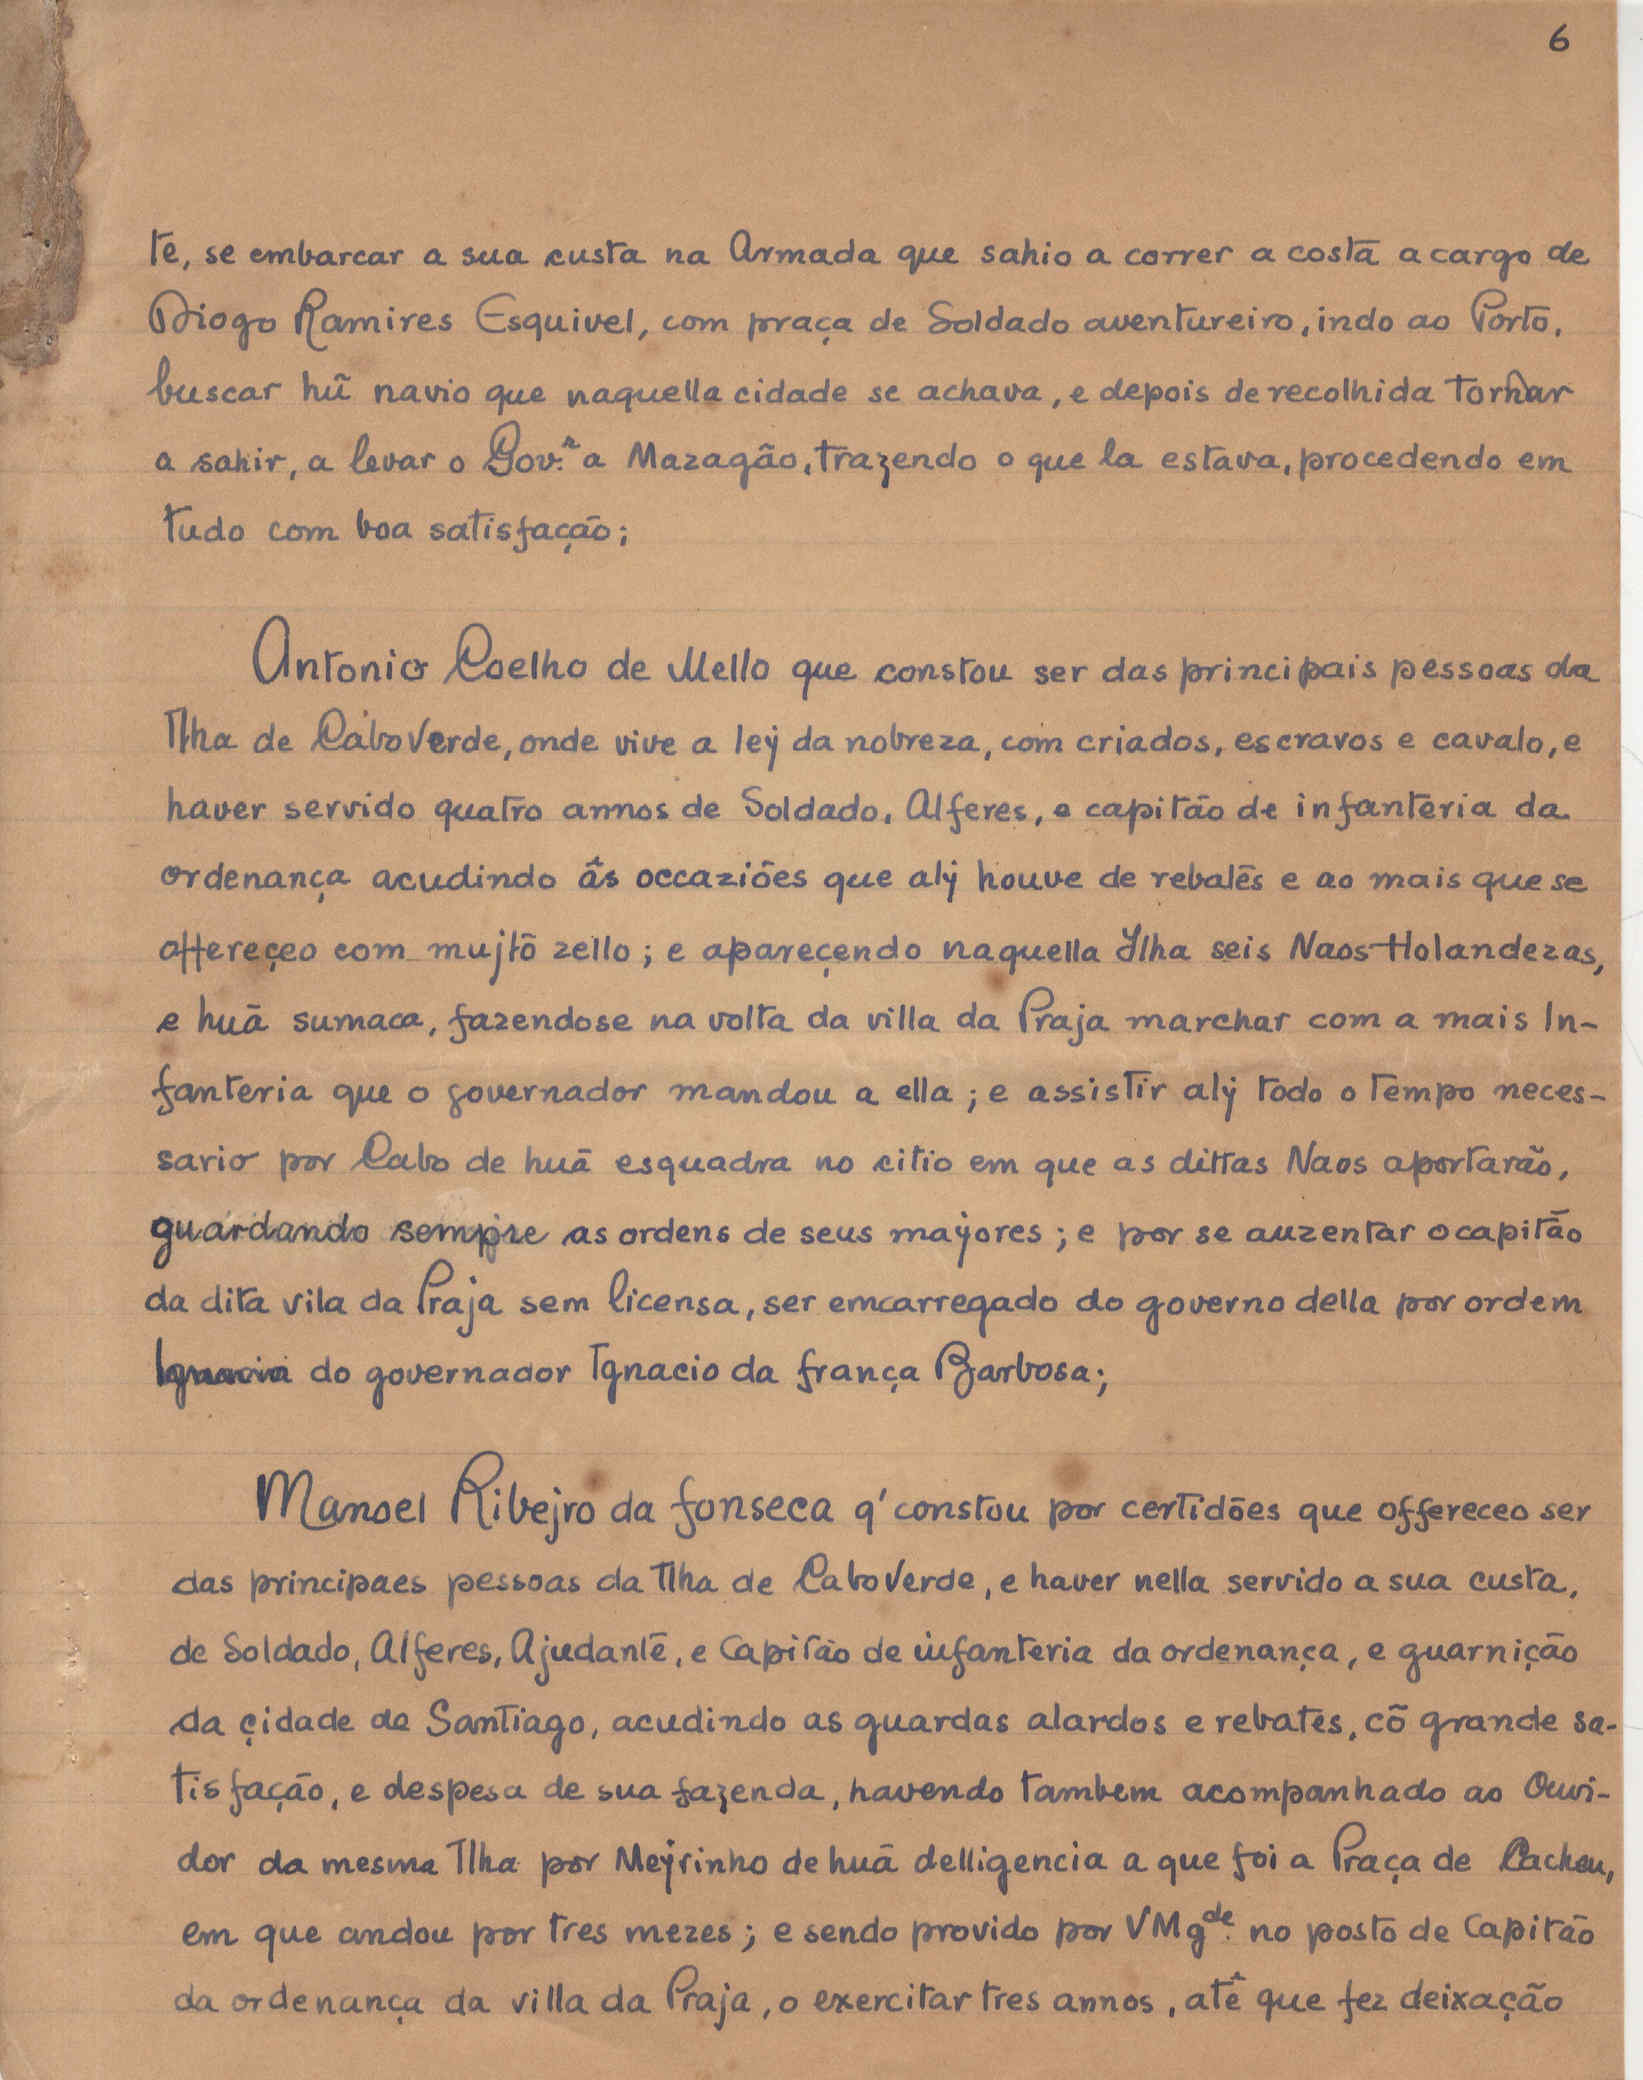 6
te, se embarcar a sua custa na Armada que sahio a correr a costa a cargo de
Diogo Ramires Esquivel, com praça de Soldado aventureiro, indo ao Porto,
buscar hũ navio que naquella cidade se achava, e depois de recolhida tornar
a sahir, a levar o Gov.r a Mazagão, trazendo o que la estava, procedendo em
tudo com boa satisfação;
Antonio Coelho de Mello que constou ser das principais pessoas da
Ilha de Cabo Verde, onde vive a leÿ da nobreza, com criados, escravos e cavalo, e
haver servido quatro annos de Soldado, Alferes, e capitão de infanteria da
ordenança acudindo âs occaziões que alÿ houve de rebates e ao mais que se
offereçeo com mujto zello; e apareçendo naquella Ilha seis Naos Holandezas,
e huã sumaca, fazendose na volta da villa da Praja marchar com a mais In-
fanteria que o governador mandou a ella; e assistir alÿ todo o tempo neces-
sario por Cabo de huã esquadra no citio em que as dittas Naos aportarão,
guardando sempre as ordens de seus maÿores; e por se auzentar o capitão
da dita vila da Praja sem licensa, ser emcarregado do governo della por ordem
do governador Ignacio da frança Barbosa;
Manoel Ribejro da fonseca q' constou por certidões que offereceo ser
das principaes pessoas da Ilha de Cabo Verde, e haver nella servido a sua custa,
de Soldado, Alferes, Ajudante, e Capitão de infanteria da ordenança, e guarnição
da çidade de Santiago, acudindo as guardas alardos e rebates, cõ grande sa-
tisfação, e despesa de sua fazenda, havendo tambem acompanhado ao Ouvi-
dor da mesma Ilha por Meÿrinho de huã delligencia a que foi a Praça de Cacheu,
em que andou por tres mezes; e sendo provido por VMg.de no posto de Capitão
da ordenança da villa da Praja, o exercitar tres annos, atê que fez deixação